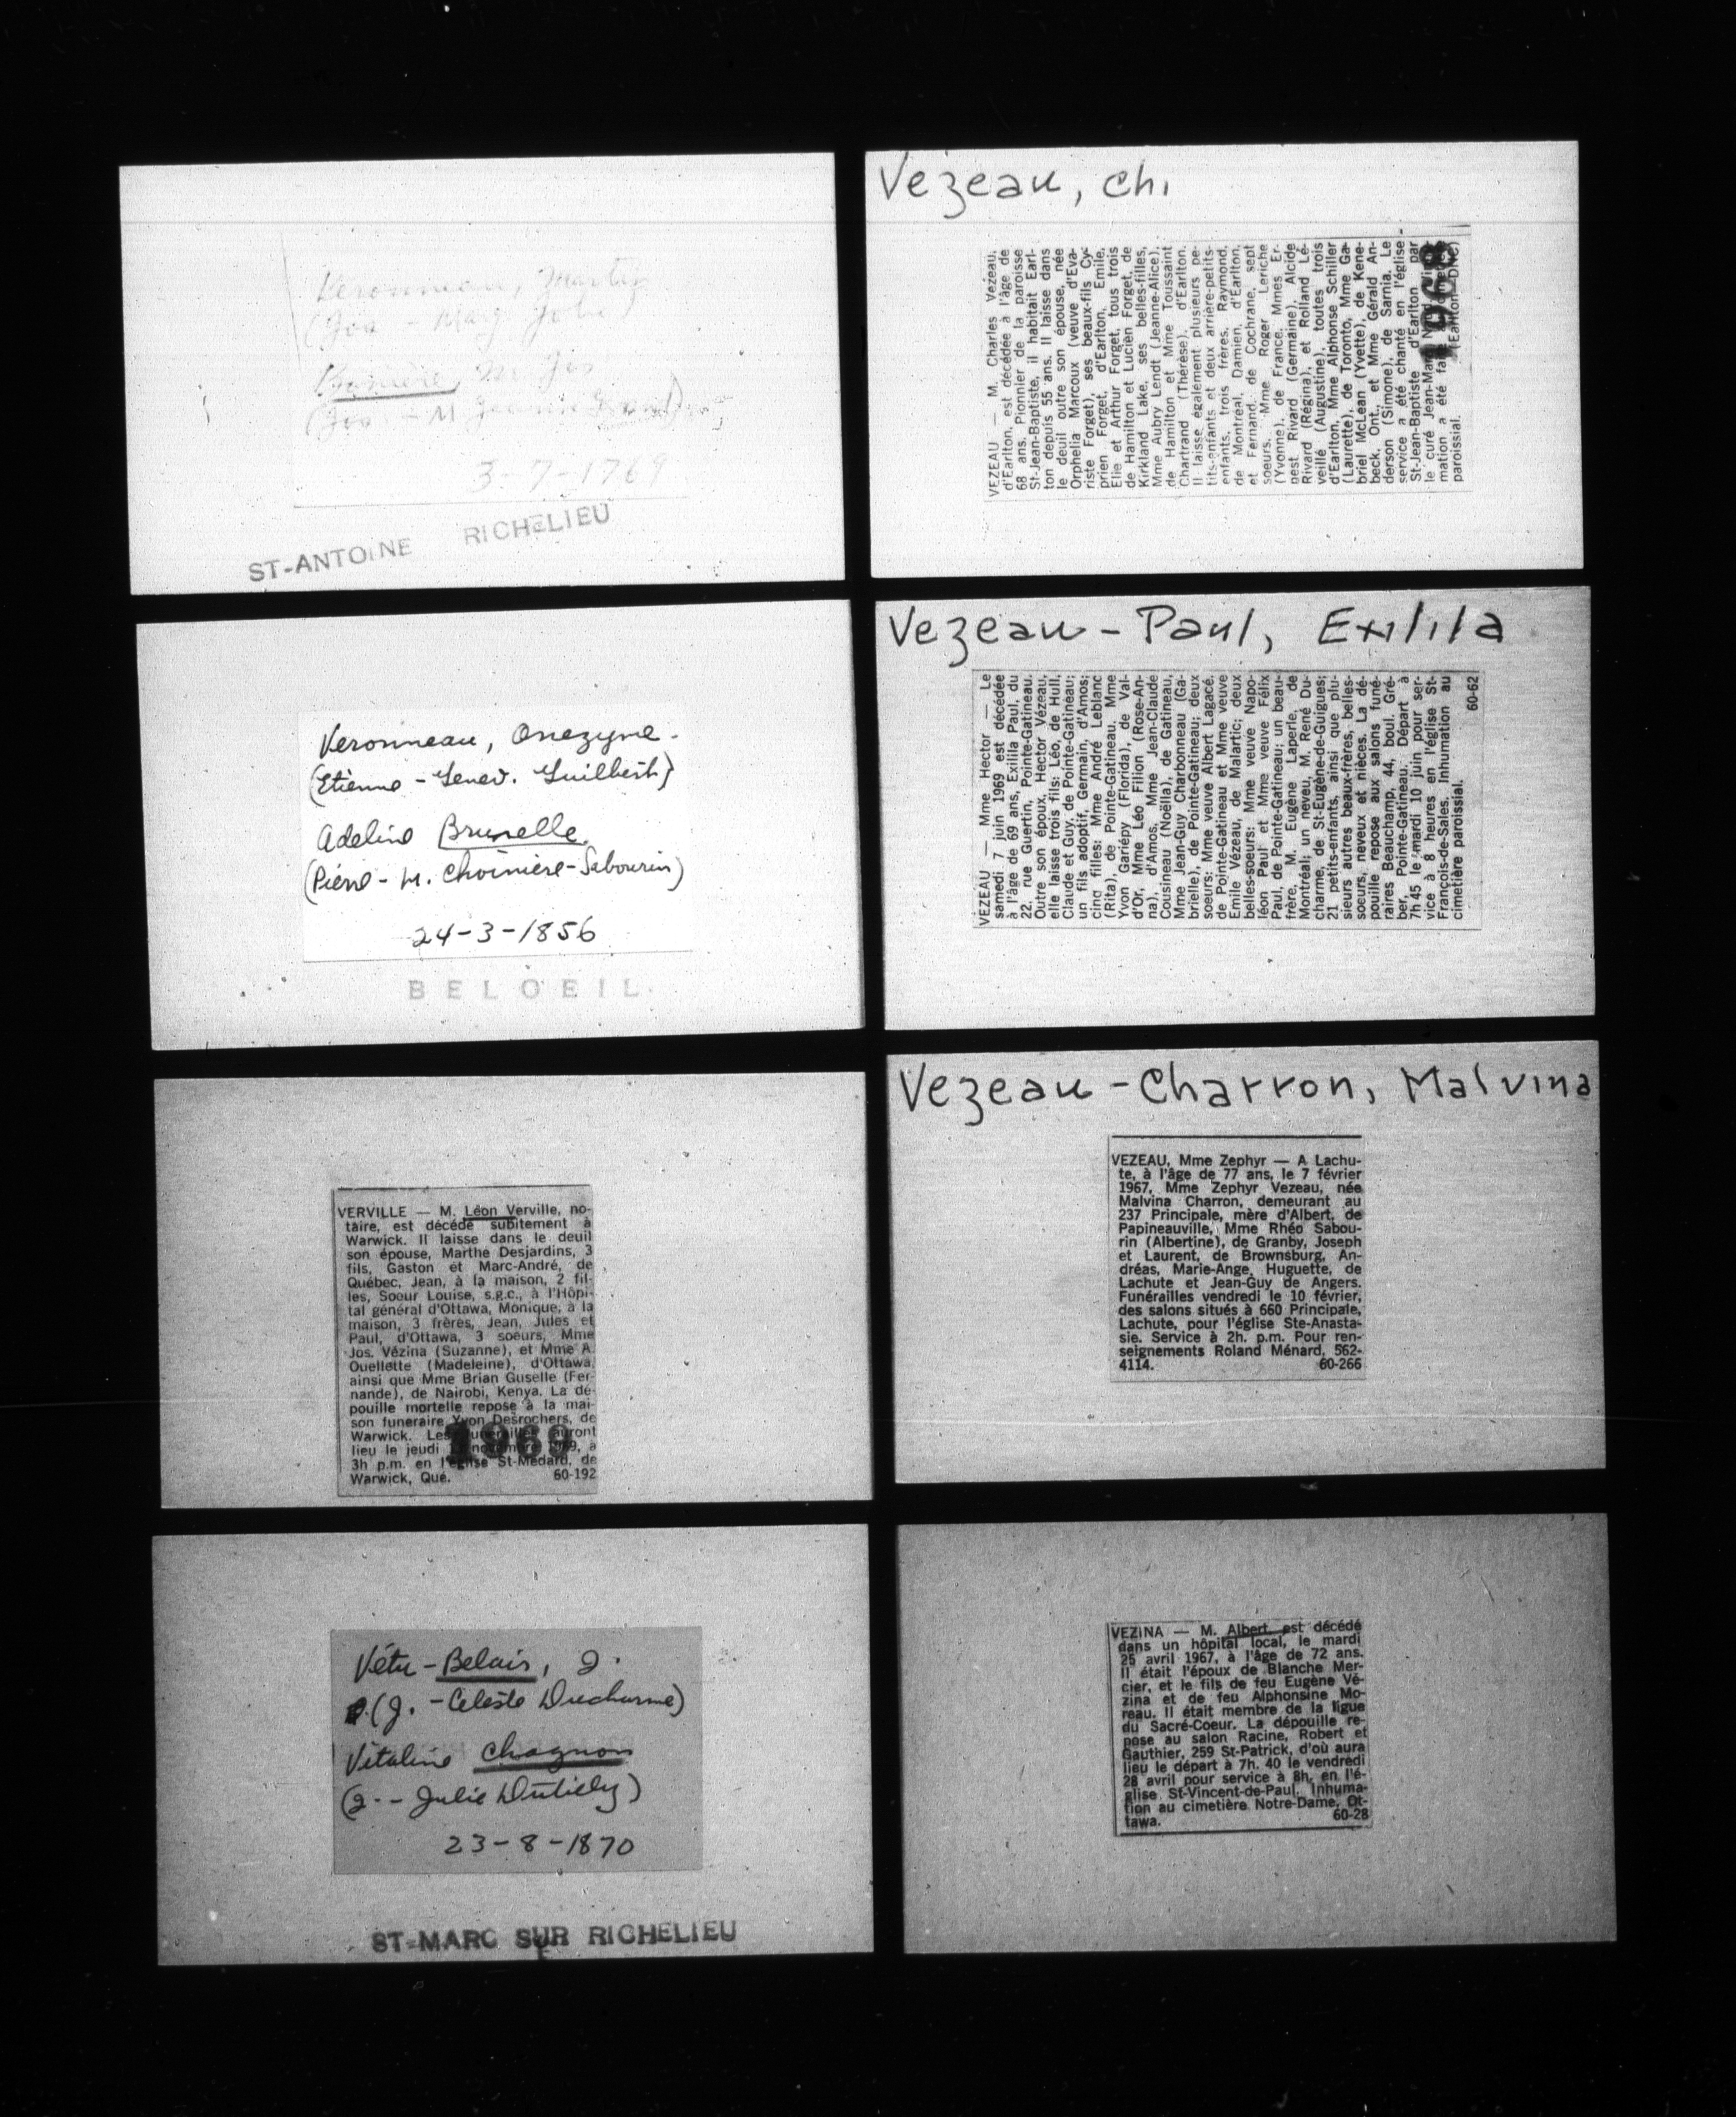 Veronneau, Martin
3-7-1769
ST-ANTOINE RICHELIEU
Veronneau, Onezyme.
(Etienne - Genev. Guilbert)
Adeline Brunelle
(Pierre - M. Choiniere-Sabourin)
24-3-1856
BELOEIL
VERVILLE — M. Léon Verville, no-
taire, est décédé subitement à
Warwick. Il laisse dans le deuil
son épouse, Marthe Desjardins, 3
fils, Gaston et Marc-André, de
Québec, Jean, à la maison, 2 fil-
les, Soeur Louise, s.g.c., à l'Hôpi-
tal général d'Ottawa, Monique, à la
maison, 3 frères, Jean, Jules et
Paul, d'Ottawa, 3 soeurs, Mme
Jos. Vézina (Suzanne), et Mme A.
Ouellette (Madeleine), d'Ottawa,
ainsi que Mme Brian Guselle (Fer-
nande), de Nairobi, Kenya. La dé-
pouille mortelle repose à la mai-
son funeraire Yvon Desrochers, de
Warwick. Les funérailles auront
lieu le jeudi novembre 1969, à
3h p.m. en l'église St-Médard, de
Warwick, Qué. 60-192
1969
Vétu-Belair, J.
(J. - Celeste Ducharme)
Vitaline Chagnon
(J. - Julie Dutilly)
23-8-1870
ST-MARC SUR RICHELIEU
Vezeau, Ch.
VEZEAU — M. Charles Vézeau,
d'Earlton, est décédée à l'âge de
68 ans. Pionnier de la paroisse
St-Jean-Baptiste, il habitait Earl-
ton depuis 55 ans. Il laisse dans
le deuil outre son épouse, née
Orphelia Marcoux (veuve d'Eva-
riste Forget), ses beaux-fils Cy-
prien Forget, d'Earlton, Emile,
Elie et Arthur Forget, tous trois
de Hamilton et Lucien Forget, de
Kirkland Lake, ses belles-filles,
Mme Aubry Lendt (Jeanne-Alice),
de Hamilton et Mme Toussaint
Chartrand (Thérèse), d'Earlton.
Il laisse également plusieurs pe-
tits-enfants et deux arrière-petits-
enfants, trois frères, Raymond,
de Montréal, Damien, d'Earlton,
et Fernand, de Cochrane, sept
soeurs, Mme Roger Leriche
(Yvonne), de France, Mmes Er-
nest Rivard (Germaine), Alcide
Rivard (Régina), et Rolland Lé-
veillé (Augustine), toutes trois
d'Earlton, Mme Alphonse Schiller
(Laurette), de Toronto, Mme Ga-
briel McLean (Yvette), de Kene-
beck, Ont., et Mme Gérald An-
derson (Simone), de Sarnia. Le
service a été chanté en l'église
St-Jean-Baptiste d'Earlton par
le curé Jean-Marc
mation a été faite
paroissial. (Earlton-DNC)
1968
Vezeau-Paul, Exilila
VEZEAU — Mme Hector — Le
samedi 7 juin 1969 est décédée
à l'âge de 69 ans, Exilia Paul, du
22, rue Guertin, Pointe-Gatineau.
Outre son époux, Hector Vézeau,
elle laisse trois fils: Léo, de Hull,
Claude et Guy, de Pointe-Gatineau;
un fils adoptif, Germain, d'Amos;
cinq filles: Mme André Leblanc
(Rita), de Pointe-Gatineau, Mme
Yvon Gariépy (Florida), de Val-
d'Or, Mme Léo Filion (Rose-An-
na), d'Amos, Mme Jean-Claude
Cousineau (Noëlla), de Gatineau,
Mme Jean-Guy Charbonneau (Ga-
brielle), de Pointe-Gatineau; deux
soeurs: Mme veuve Albert Lagacé,
de Pointe-Gatineau et Mme veuve
Emile Vézeau, de Malartic; deux
belles-soeurs: Mme veuve Napo-
léon Paul et Mme veuve Félix
Paul, de Pointe-Gatineau; un beau-
frère, M. Eugène Laperle, de
Montréal; un neveu, M. René Du-
charme, de St-Eugène-de-Guigues;
21 petits-enfants, ainsi que plu-
sieurs autres beaux-frères, belles-
soeurs, neveux et nièces. La dé-
pouille repose aux salons funé-
raires Beauchamp, 44, boul. Gré-
ber, Pointe-Gatineau. Départ à
7h 45 le mardi 10 juin pour ser-
vice à 8 heures en l'église St-
François-de-Sales. Inhumation au
cimetière paroissial. 60-62
Vezeau-Charron, Malvina
VEZEAU, Mme Zephyr — A Lachu-
te, à l'âge de 77 ans, le 7 février
1967, Mme Zephyr Vezeau, née
Malvina Charron, demeurant au
237 Principale, mère d'Albert, de
Papineauville, Mme Rhéo Sabou-
rin (Albertine), de Granby, Joseph
et Laurent, de Brownsburg, An-
dréas, Marie-Ange, Huguette, de
Lachute et Jean-Guy de Angers.
Funérailles vendredi le 10 février,
des salons situés à 660 Principale,
Lachute, pour l'église Ste-Anasta-
sie. Service à 2h. p.m. Pour ren-
seignements Roland Ménard, 562-
4114. 60-266
VEZINA — M. Albert est décédé
dans un hôpital local, le mardi
25 avril 1967, à l'âge de 72 ans.
Il était l'époux de Blanche Mer-
cier, et le fils de feu Eugène Vé-
zina et de feu Alphonsine Mo-
reau. Il était membre de la ligue
du Sacré-Coeur. La dépouille re-
pose au salon Racine, Robert et
Gauthier, 259 St-Patrick, d'où aura
lieu le départ à 7h. 40 le vendredi
28 avril pour service à 8h. en l'é-
glise St-Vincent-de-Paul. Inhuma-
tion au cimetière Notre-Dame, Ot-
tawa. 60-28